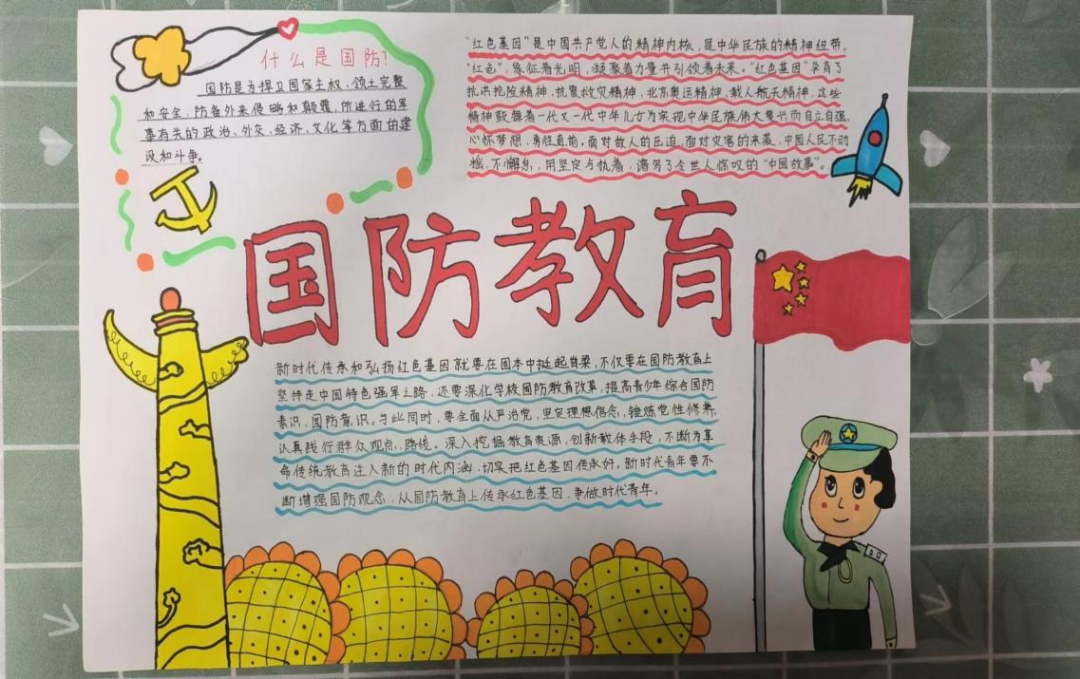 什么是国防?
国防是为捍卫国家主权、领土完整
和安全,防备外来侵略和颠覆,所进行的军
事有关的政治、外交、经济、文化等方面的建
设和斗争。
"红色基因"是中国共产党人的精神内核,是中华民族的精神纽带。
"红色",象征着光明,凝聚着力量并引领着未来。"红色基因"孕育了
抗洪抢险精神,抗震救灾精神,北京奥运精神,载人航天精神,这些
精神鼓舞着一代又一代中华儿女为实现中华民族伟大复兴而自立自强,
心怀梦想,勇往直前。面对敌人的压迫,面对灾害的来袭,中国人民不动
摇,不懈怠,用坚定与执着,谱写了令世人惊叹的"中国故事"。
国防教育
新时代传承和弘扬红色基因就要在固本中挺起脊梁,不仅要在国防教育上
坚持走中国特色强军之路,还要深化学校国防教育改革,提高青少年综合国防
素识,国防意识。与此同时,要全面从严治党,坚定理想信念,锤炼党性修养,
认真践行群众观点、路线。深入挖掘教育资源,创新载体手段,不断为革
命传统教育注入新的时代内涵,切实把红色基因传承好。新时代青年要不
断增强国防观念,从国防教育上传承红色基因,争做时代青年。